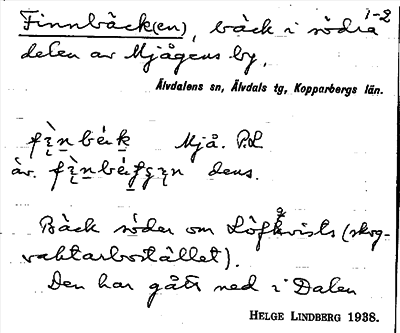 1-2
Finnbäck(en), bäck i södra
delen av Mjågens by,
Älvdalens sn, Älvdals tg, Kopparbergs län.
Mjå. P.L
äv. dens.
Bäck söder om Löfkvists (skog-
vaktarbostället).
Den har gått ned i Dalen
HELGE LINDBERG 1938.